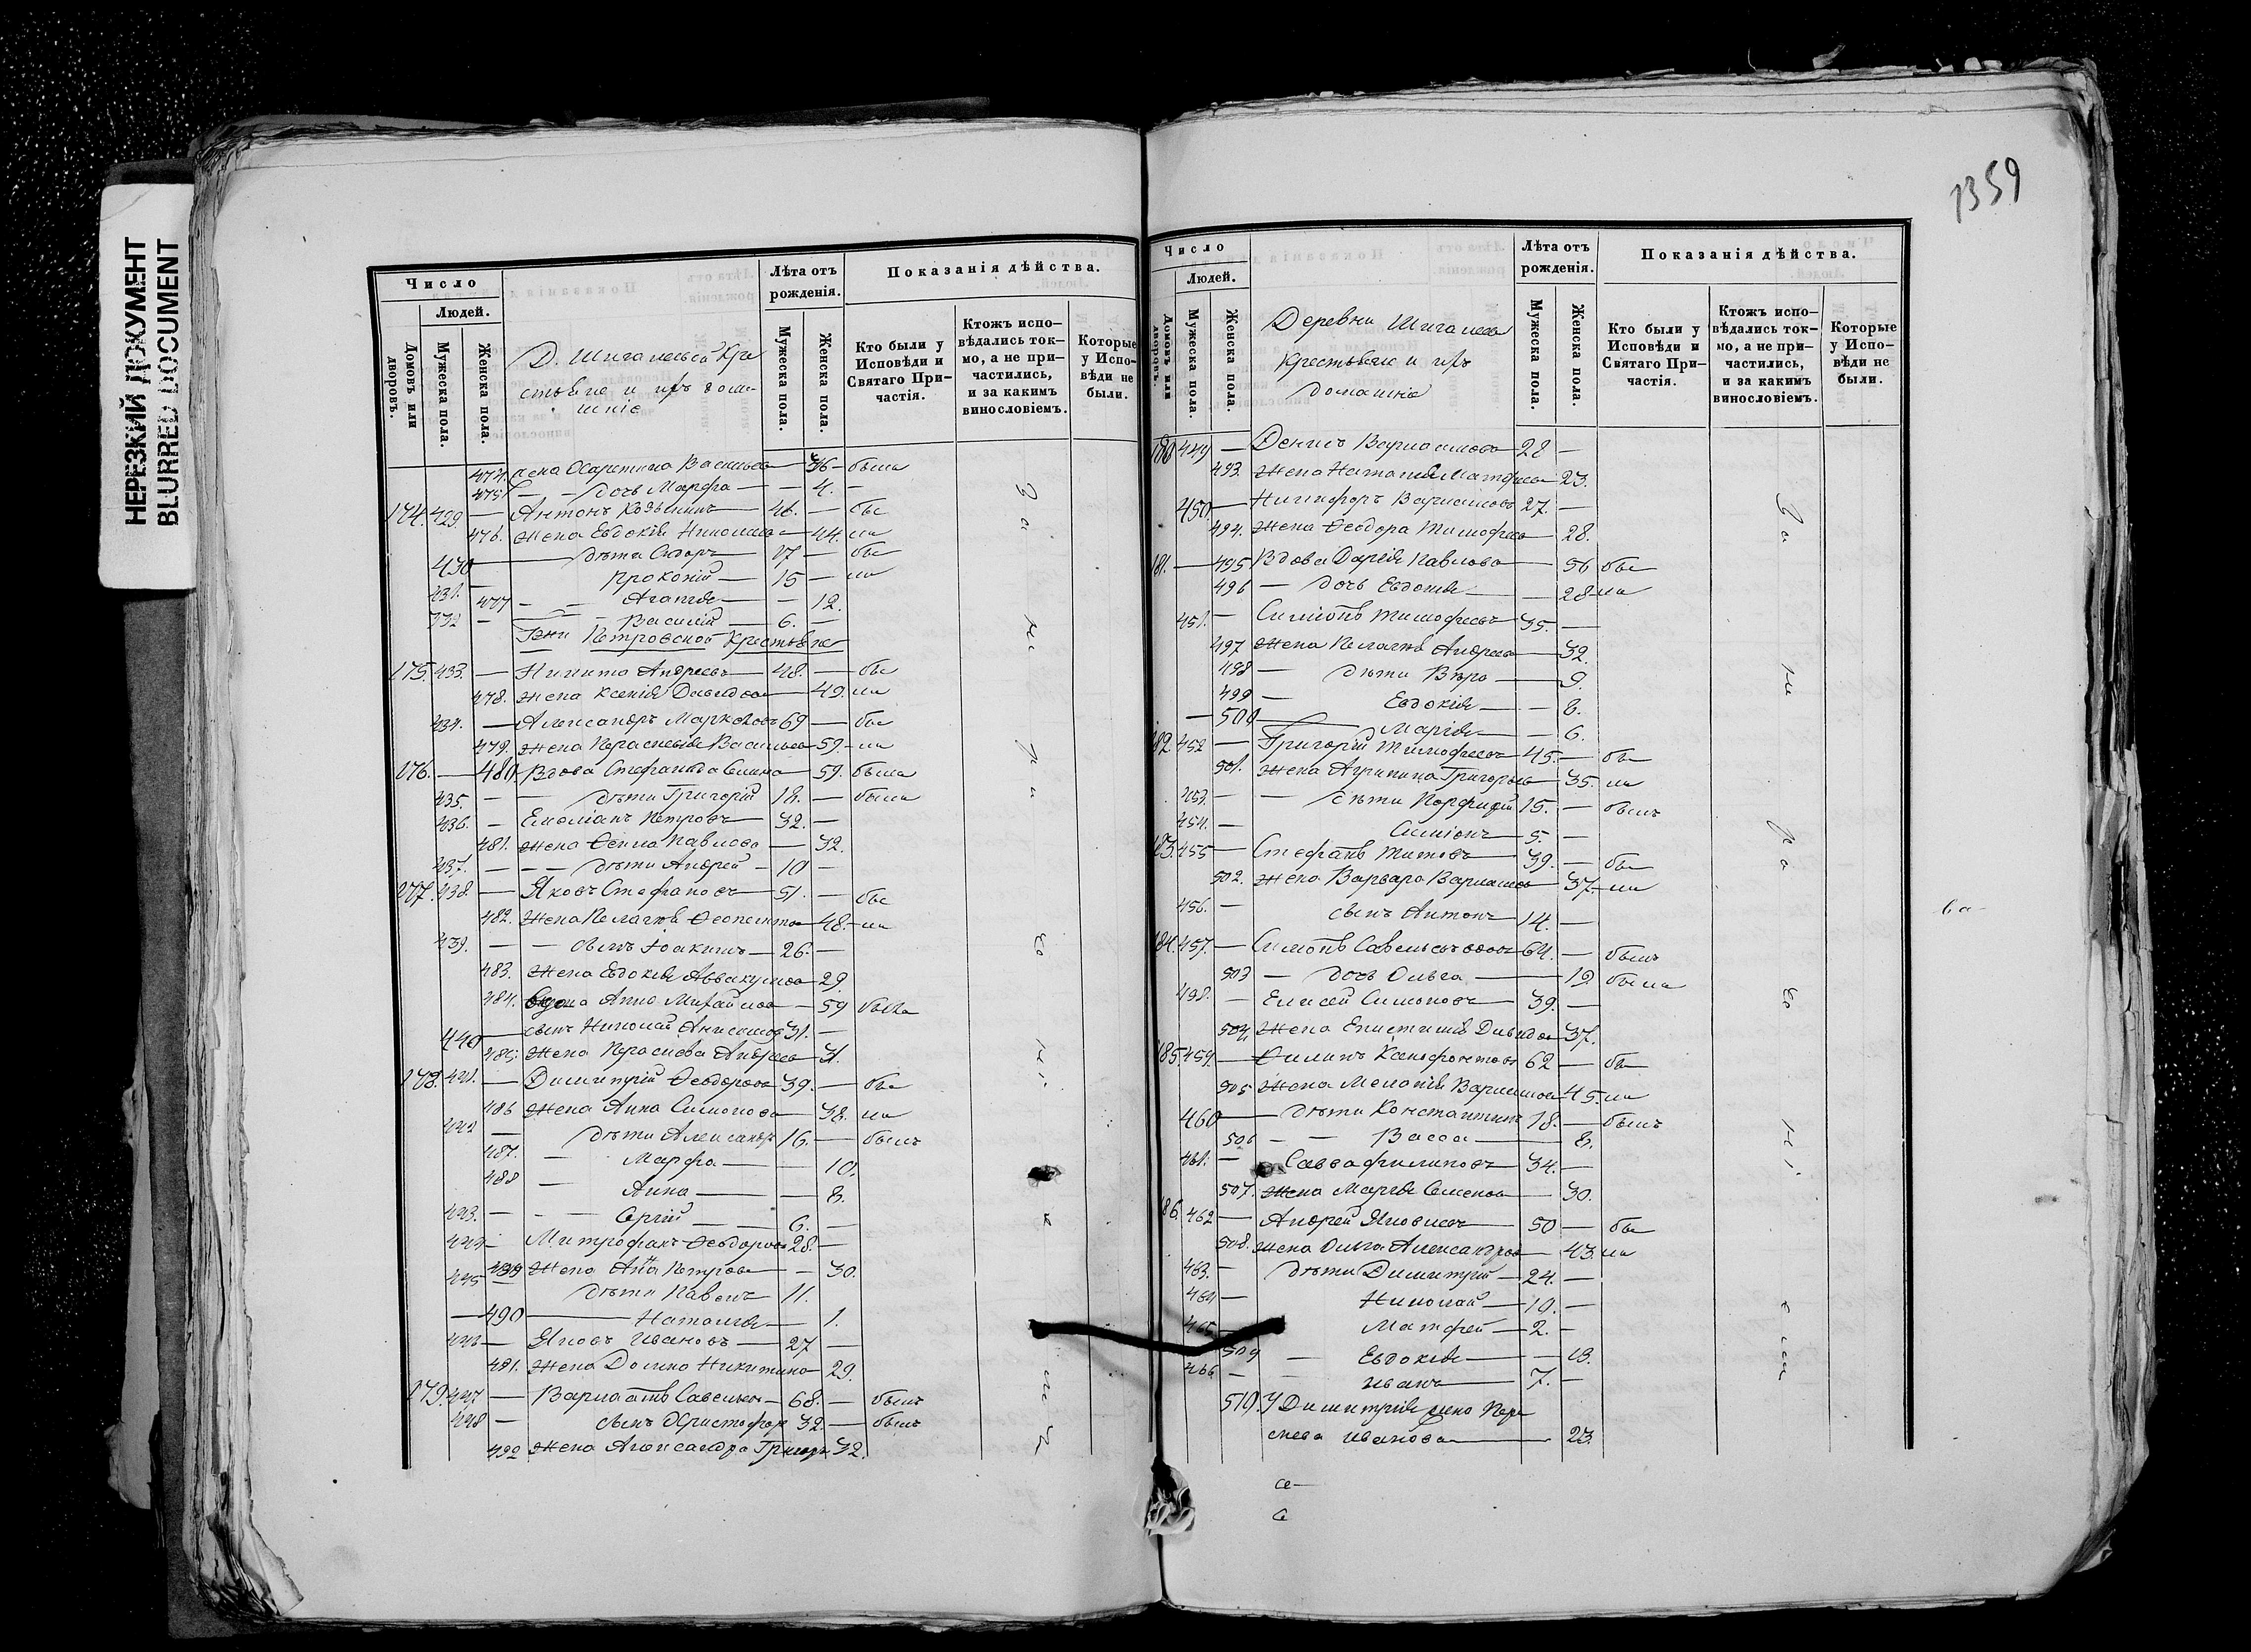 НЕРЕЗКИЙ ДОКУМЕНТ
BLURRED DOCUMENT
Число
Людей.
Домовъ или дворовъ.
Мужеска пола.
Женска пола.
Д. Шигалевой Кре
стьяне и ихъ дома
шніе
Лѣта отъ рожденія.
Мужеска пола.
Женска пола.
Показанія дѣйства.
Кто были у Исповѣди и Святаго Причастія.
Ктожъ исповѣдались токмо, а не причастились, и за какимъ винословіемъ.
Которые у Исповѣди не были.
474. жена Харитина Васильева 36 была
475. дочь Марфа 4.
174. 429. Антонъ Козьминъ 46. бы
476. жена Евдокія Николаева 44. ли
430 дѣти Сидоръ 17 бы
431. Прокопій 15 ли
477 Агапія 12.
432 Василій 6.
Г-жи Петровской Крестьяне
175. 433. Никита Андреевъ 48. бы
478. жена Ксенія Давидова 49. ли
434. Александръ Марковъ 69 бы
479. жена Параскевія Васильева 59. ли
176. 480. Вдова Стефанида 59. была
435. дѣти Григорій 18. были
436. Емеліанъ Петровъ 32.
481. жена Ѳекла Павлова 32.
437. дѣти Андрей 10
177. 438. Яковъ Стефановъ 51. бы
482. Жена Пелагія Ѳеопентова 48. ли
439. сынъ Іоакимъ 26.
483. Жена Евдокія Аввакумова 29.
484. Вдова Анна Михайлова 59 была
440 сынъ Николай Анисимовъ 31.
485. Жена Параскева Андреева 31.
178. 441. Димитрій Ѳеодоровъ 39. бы
486 Жена Анна Симонова 38. ли
442 дѣти Александръ 16. былъ
487. Марфа 10.
488 Анна 8.
443. Сергій 6.
444 Митрофанъ Ѳеодоровъ 28.
489 Жена Анна Петрова 30.
445 дѣти Павелъ 11.
490 Наталія 1.
446 Яковъ Ивановъ 27
491. Жена Домна Никитина 29.
179. 447 Варлаамъ Савельевъ 68. былъ
448 сынъ Христофоръ 32. былъ
492 Жена Александра Григорь 32.
За
м
1359
Число
Людей.
Домовъ или дворовъ.
Мужеска пола.
Женска пола.
Деревни Шигалева
Крестьяне и ихъ
домашніе
Лѣта отъ рожденія.
Мужеска пола.
Женска пола.
Показанія дѣйства.
Кто были у Исповѣди и Святаго Причастія.
Ктожъ исповѣдались токмо, а не причастились, и за какимъ винословіемъ.
Которые у Исповѣди не были.
180 449 Денисъ Варлаамовъ 28
493. Жена Наталія Матфеева 23.
450. Никифоръ Варлаамовъ 27.
494. Жена Ѳеодора Тимофеева 28.
181. 495 Вдова Дарія Павлова 56 бы
496 дочь Евдокія 28 ли
451. Симіонъ Тимофеевъ 35.
497 Жена Пелагія Андреева 32.
498 дѣти Вѣра 9.
499 Евдокія 8.
500 Марія 6.
182. 452 Григорій Тимофеевъ 45. бы
501. Жена Агрипина Григорьева 35. ли
453. дѣти Порфирій 15. былъ
454. Симіонъ 5.
183. 455 Стефанъ Титовъ 39. бы
502. Жена Варвара Варлаамова 37. ли
456. сынъ Антонъ 14.
184. 457. Симонъ Савельевъ вдовъ 64. былъ
503 дочь Ольга 19 была
498. Елисей Симоновъ 39.
504 Жена Епистимія Давидова 37.
185. 459. Филипъ Ксенофонтовъ 62 бы
505 Жена Меланія Варлаамова 45. ли
460 дѣти Константинъ 18. былъ
506 Васса 8.
461. Савва Филиповъ 34.
507. Жена Марія Семенова 30.
186. 462 Андрей Яковлевъ 50 бы
508. Жена Ольга Александрова 43. ли
463. дѣти Димитрій 24.
464 Николай 10.
465 Матфей 2.
509 Евдокія 13.
466 Иванъ 7.
510. У Димитрія жена Пара
скева Иванова 23.
За
м